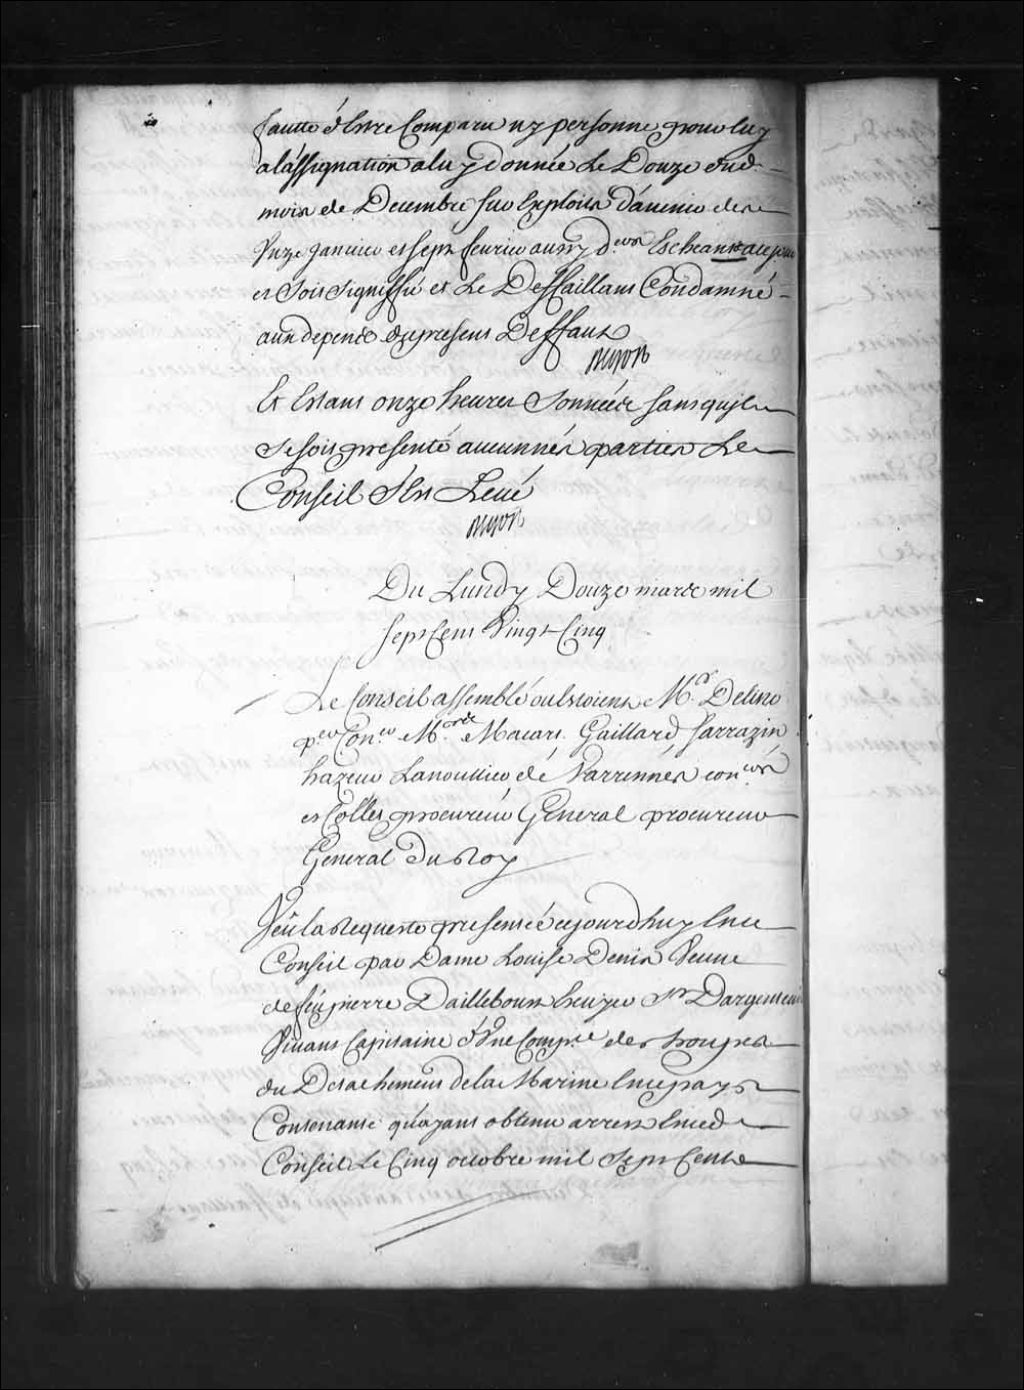 fautte d'Estre Comparu ny personne pour luy
a l'assignation a luy donnée Le Douze dud.
mois de Decembre sur Exploits d'avenir des
Unze Janvier et sept fevrier aussy d.ers Escheants a ce jour
et Soit Signiffié et Le Deffaillant Condamné
aux depens du present Deffaut
Et Estant onze heures Sonnées sans quil
se soit presenté aucunnes parties Le
Conseil S'est Levé
Du Lundy Douze mars mil
sept Cent Vingt Cinq
Le Conseil assemblé ou Estoient M.r Delino
p.er Con.er M.rs Macart Gaillard Sarrazin
hazeur Lanoullier de Varrennes con.ers
et Collet procureur General procureur
General du Roy
Veu la Requeste presentée ce jourdhuy En ce
Conseil par Dame Louise Denis Veuve
de feu pierre Dailleboust Ecuyer S.r Dargenteuil
Vivant Capitaine d'Une Comp.ie des troupes
du Detachement de la Marine En ce pays
Contenante qu'ayant obtenu arrest En ced.
Conseil Le Cinq octobre mil Sept Cent